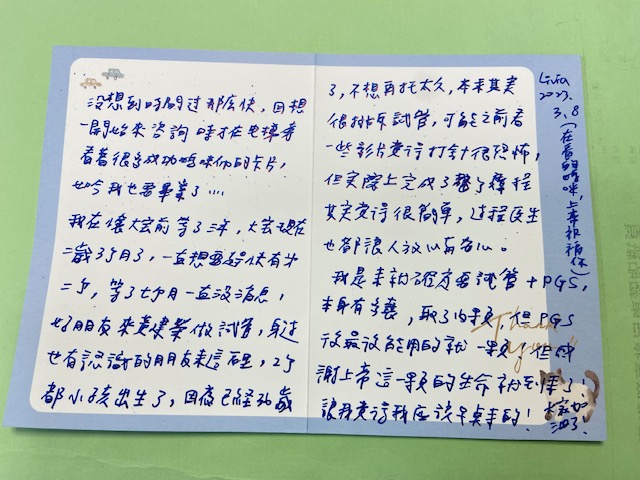 沒想到時間過那麼快，回想
一開始來咨詢時才在電梯旁
看著很多成功媽咪們的卡片，
如今我也要畢業了....
我在懷大寶前等了三年，大寶現在
二歲3個月了，一直想要趕快有
二寶，等了七個月一直沒消息，
好朋友來建議做試管，身邊
也有認識的朋友來這裡，2個
都小孩出生了，因為已經36歲
了，不想再托太久，本來其實
很排斥試管，可能之前看
一些影片覺得打針很恐怖，
但實際上完成了整個療程
其實覺得很簡單，過程醫生
也都很人放心與安心。
我是來新確定要試管+PGS，
本身有多囊，取了 顆，但PGS
後最後能用的就一顆，但感
謝上帝這一顆的生命就到陣了，
讓我覺得我應該早點來的！大家加
油了！
Thank you
Livia
2023.
3.8
（在看的媽咪，上帝祝福你）